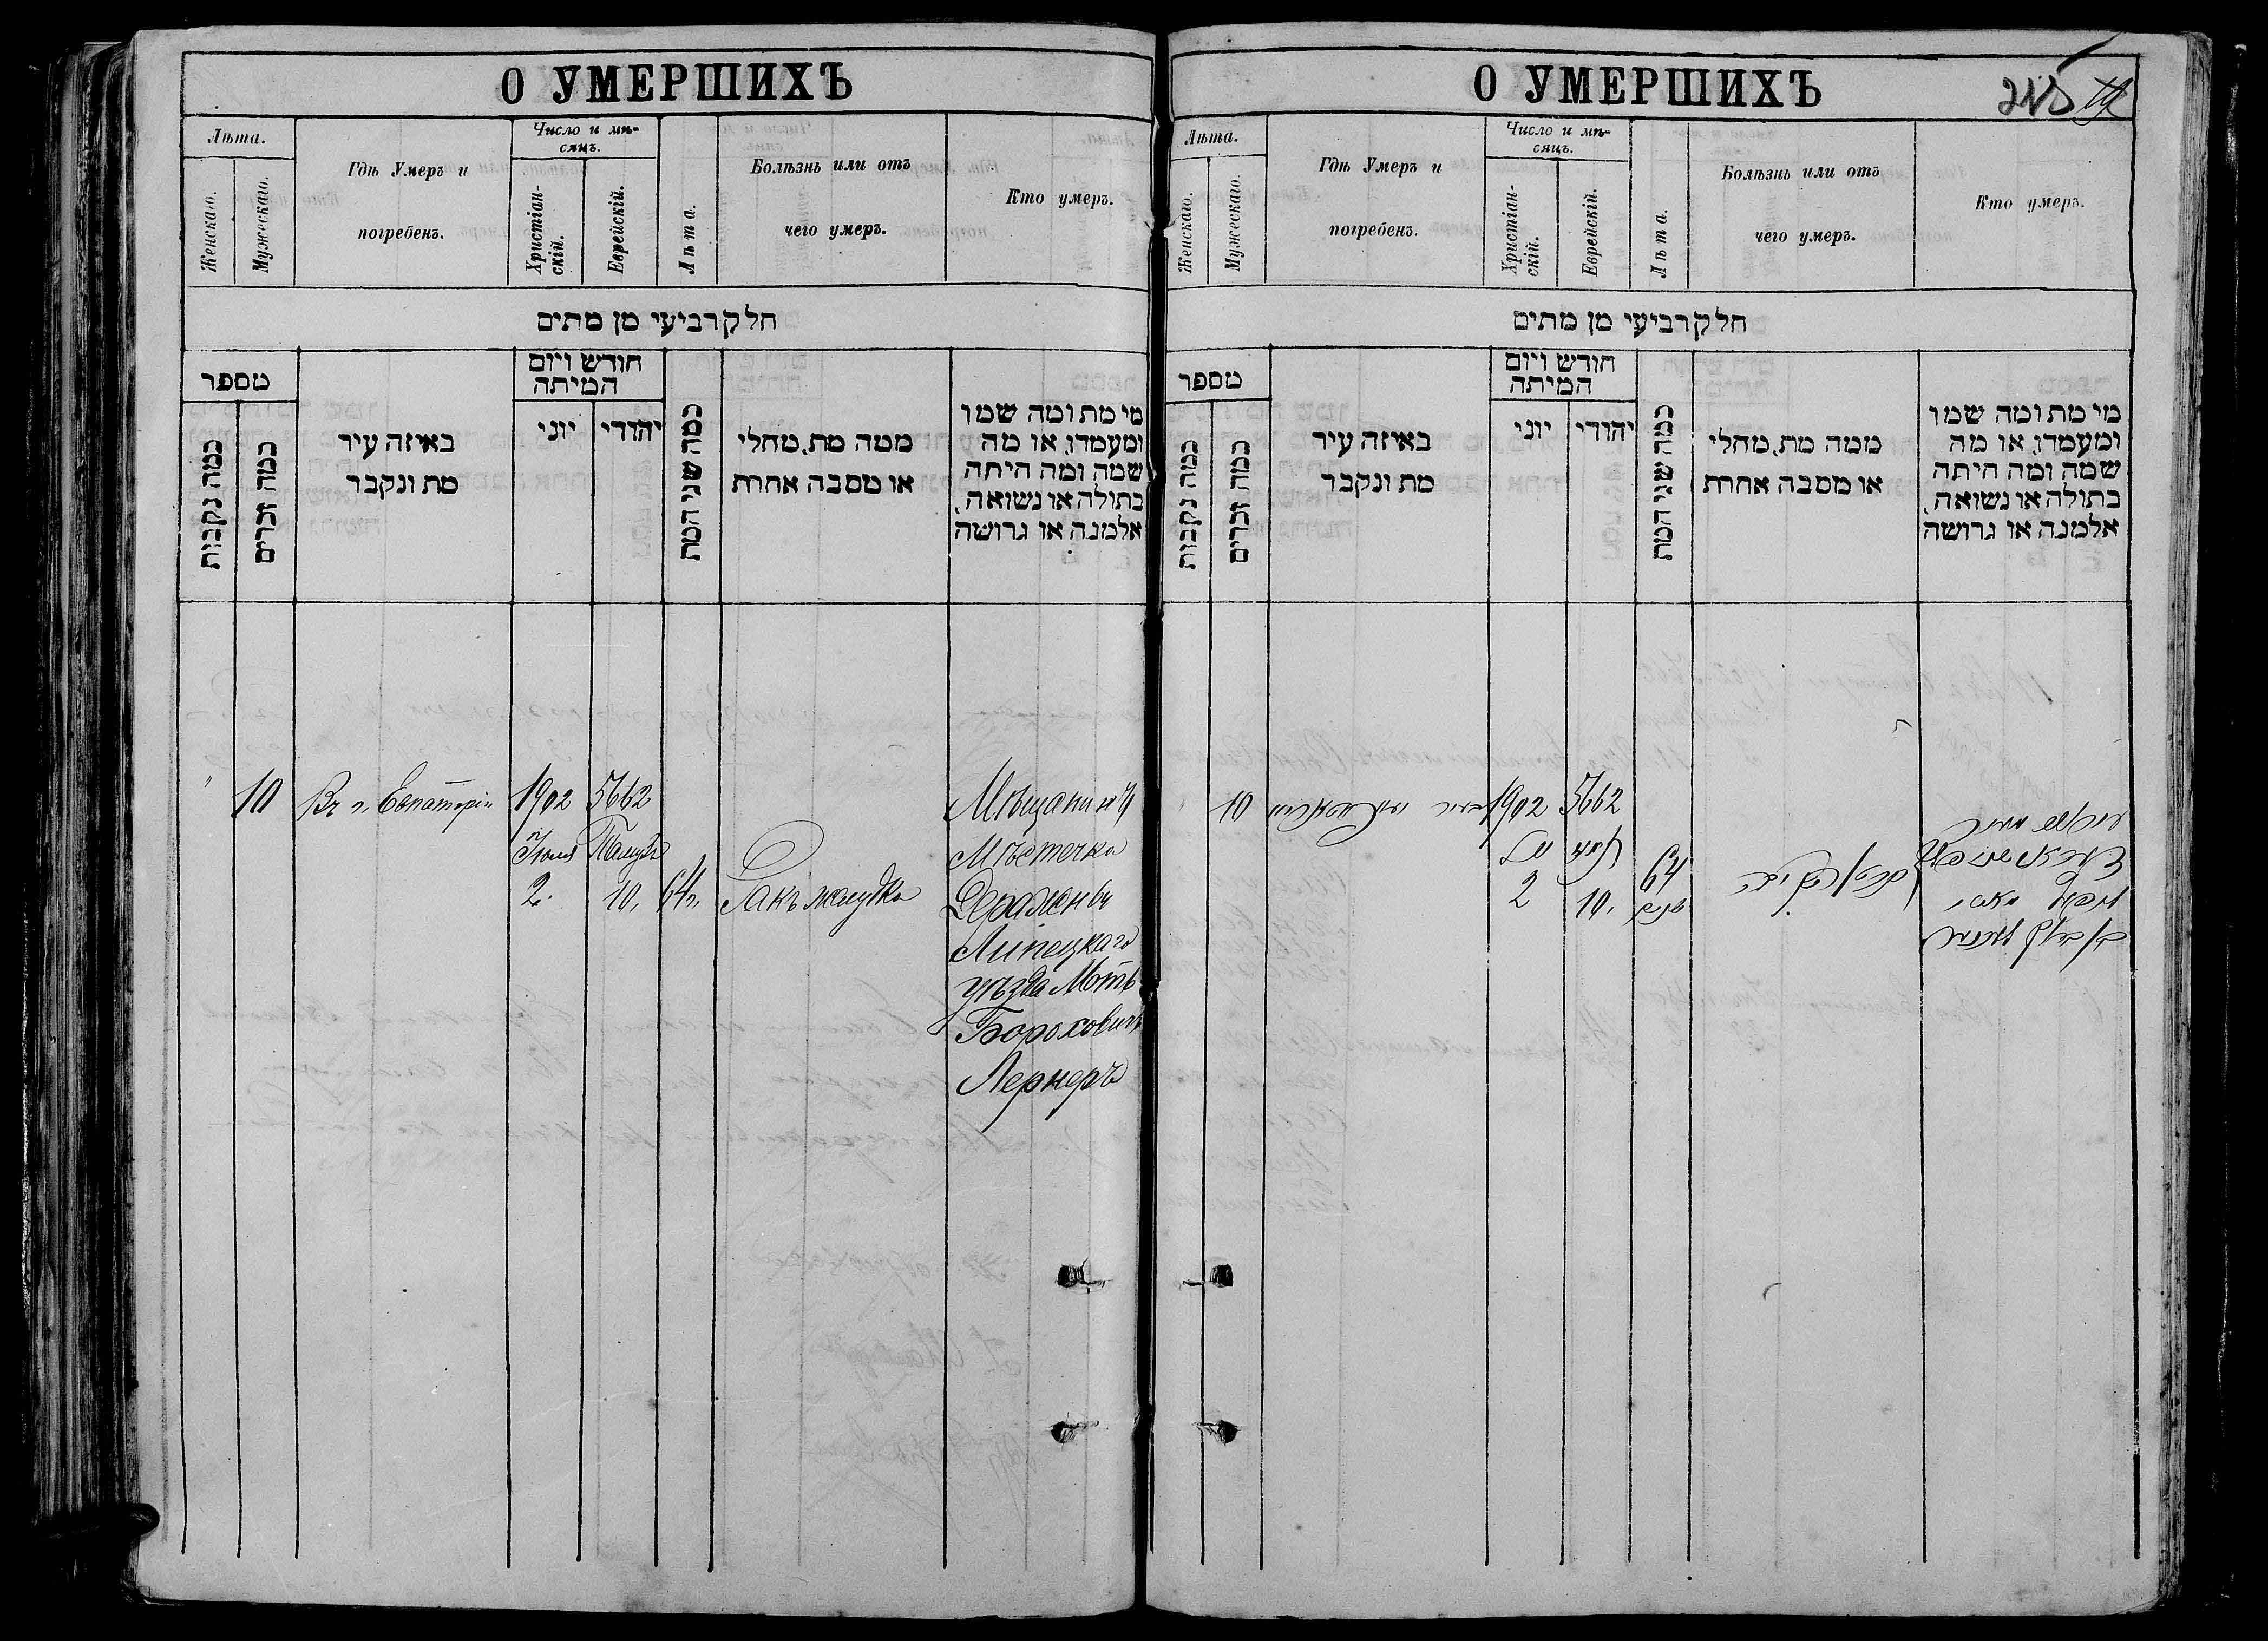 О УМЕРШИХЪ
Лѣта.
Женскаго.
Мужескаго.
Гдѣ Умеръ и
погребенъ.
Число и мѣ-
сяцъ.
Христіан-
скій.
Еврейскій.
Лѣта.
Болѣзнь или отъ
чего умеръ.
Кто умеръ.
חלק רביעי מן מתים
מספר
כמה נקבות
כמה זכרים
באיזה עיר
מת ונקבר
חודש ויום
המיתה
יוני
יהודי
כמה שני המת
ממה מת, מחלי
או מסבה אחרת
מי מת ומה שמו
ומעמדו, או מה
שמה ומה היתה
בתולה או נשואה,
אלמנה או גרושה
" 10 Въ г. Евпаторіи 1902 5662
Іюля Тамузъ
2. 10. 64 л. Ракъ желудка
Мѣщанинъ
Мѣстечка
Деражень
Липецкаго
уѣзда Мотъ
Бороховичъ
Лернеръ
О УМЕРШИХЪ
215
Лѣта.
Женскаго.
Мужескаго.
Гдѣ Умеръ и
погребенъ.
Число и мѣ-
сяцъ.
Христіан-
скій.
Еврейскій.
Лѣта.
Болѣзнь или отъ
чего умеръ.
Кто умеръ.
חלק רביעי מן מתים
מספר
כמה נקבות
כמה זכרים
באיזה עיר
מת ונקבר
חודש ויום
המיתה
יוני
יהודי
כמה שני המת
ממה מת, מחלי
או מסבה אחרת
מי מת ומה שמו
ומעמדו, או מה
שמה ומה היתה
בתולה או נשואה,
אלמנה או גרושה
" 10 1902 5662
2 10. 64